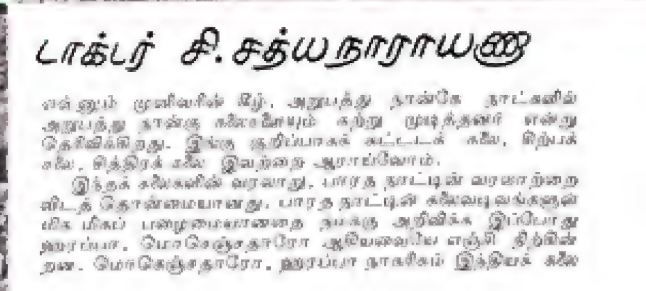 டாக்டர் சி. சத்யநாராயண
என்னும் முனிவரின் கீழ், அறுபத்து நான்கே நாட்களில்
அறுபத்து நான்கு கலைகளையும் கற்று முடித்தனர் என்று
தெரிவிக்கிறது. இங்கு குறிப்பாகக் கட்டடக் கலை, சிற்பக்
கலை, சித்திரக் கலை இவற்றை ஆராய்வோம்.
இந்தக் கலைகளின் வரலாறு, பாரத நாட்டின் வரலாற்றை
விடத் தொன்மையானது. பாரத நாட்டின் கலைவடிவங்களுள்
மிக மிகப் பழைமையானதை நமக்கு அறிவிக்க இப்போது
ஹரப்பா, மொகெஞ்சதாரோ ஆகியவையே எஞ்சி நிற்கின்
றன. மொகெஞ்சதாரோ, ஹரப்பா நாகரிகம் இந்தியக் கலை